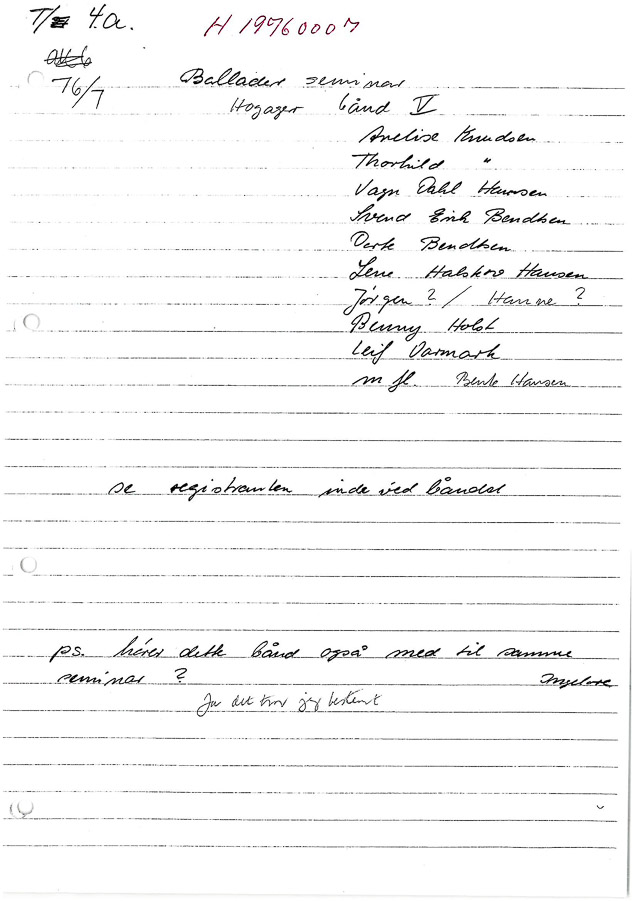 T/ 4.a.
H 19760007
76/7
Ballader seminar
Hogager bånd V
Anelise Knudsen
Thorkild "
Vagn Dahl Hansen
Svend Erik Bendtsen
Dorte Bendtsen
Lene Halskov Hansen
Jørgen ? / Hanne ?
Benny Holst
Leif Varmark
m fl. Bente Hansen
se registranten inde ved båndet
ps. hører dette bånd også med til samme
seminar ? Ingelise
Ja det tror jeg bestemt